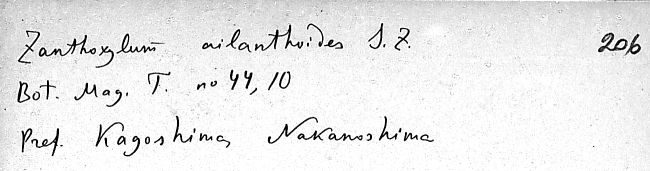 Zanthoxylum ailanthoides S. Z. 206
Bot. Mag. T. no 44, 10
Pref. Kagoshima, Nakanoshima